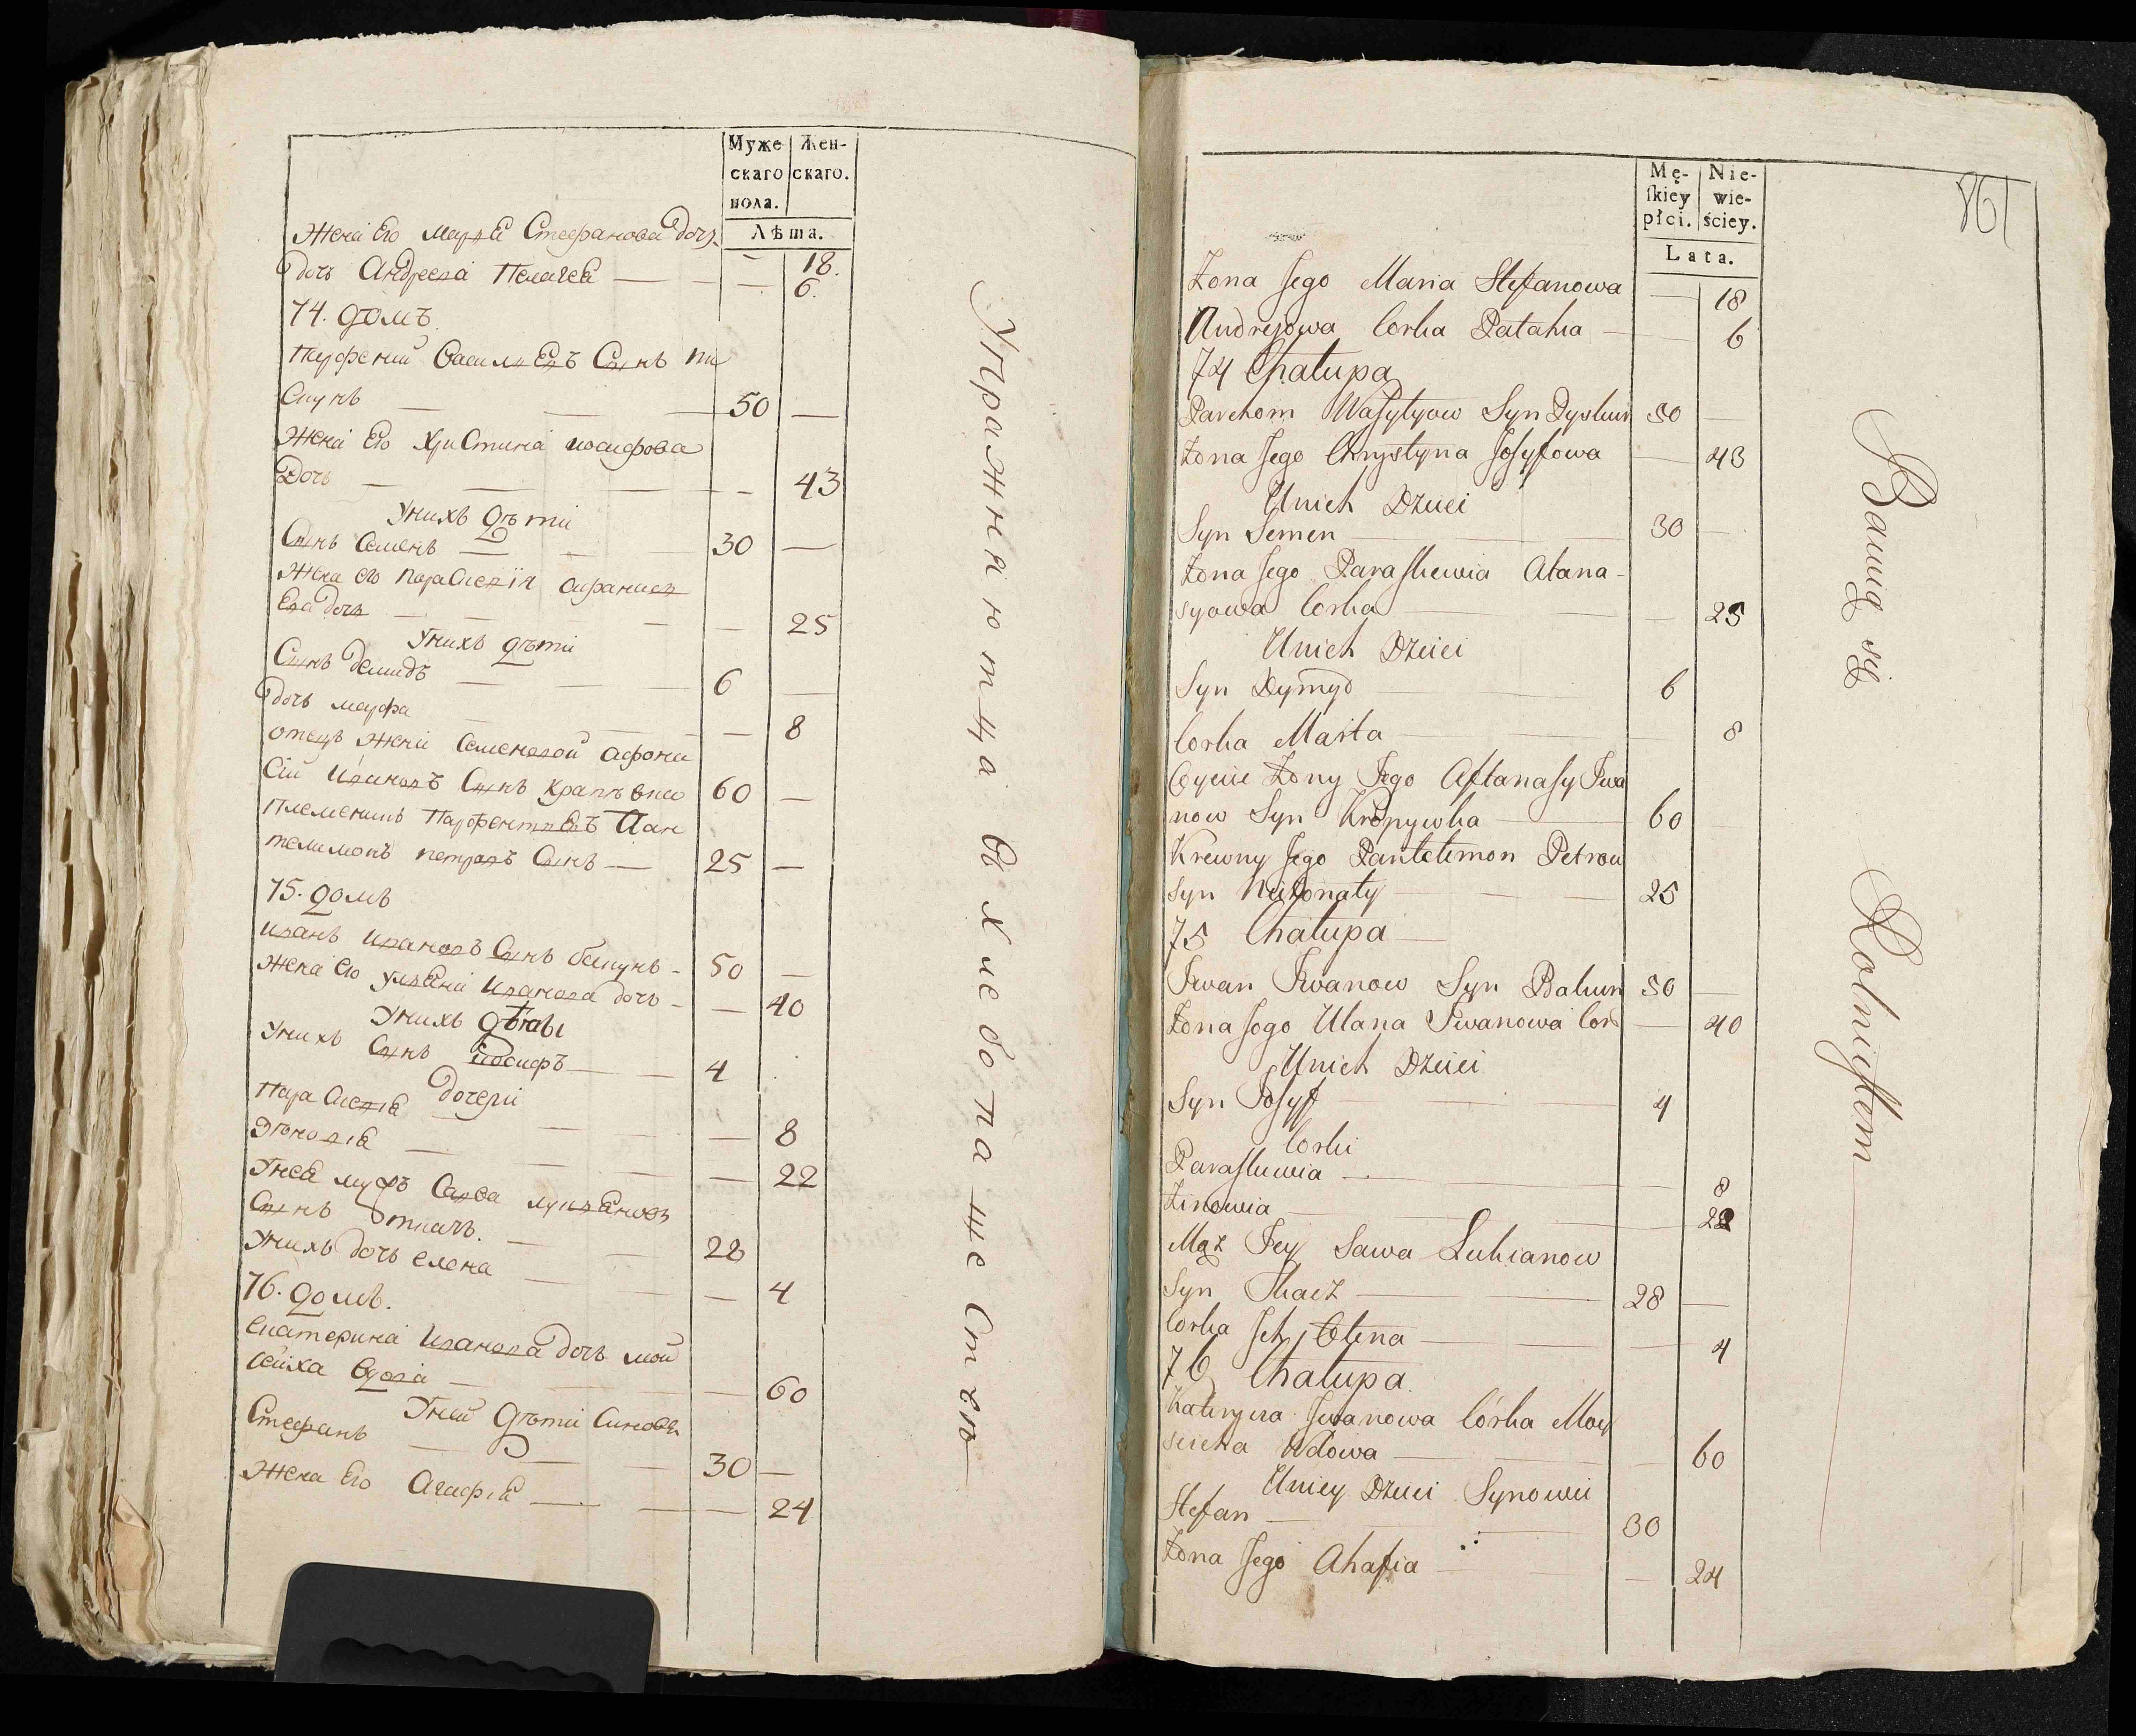 Муже Жен-
скаго скаго.
пола.
Лѣта.
Жена Его Марья Стефанова дочь
18.
дочь Андреева Пелагея — 6.
74. домъ
Парфений Васильевъ Сынъ Пи
скунъ — 50 —
Жена Его Христина иосифова
Дочь — 43
Унихъ дѣти
Сынъ Семенъ — 30 —
Жена его Параскевия афанась
Ева дочь — 25
Унихъ дѣти
Сынъ демидъ — 6 —
дочь марфа — 8
отецъ Жены Семеновой афона
сий Ивановъ Сынъ 60 —
племенникъ Парфентьевъ Пан
телимонъ петровъ Сынъ — 25 —
75. домъ
иванъ Ивановъ Сынъ бакунъ - 50 —
Жена его ульяна Иванова дочь - — 40
Унихъ дѣти
Унихъ Сынъ иосифъ — 4
дочери
Параскевия — 8
Зѣновия — 22
Унея мужъ Савва лукьяновъ
Сынъ ткачъ. — 28
Унихъ дочь елена — 4
76. домъ.
Екатерина Иванова дочь мой
сеиха вдова — 60
Уней дѣти Сыновья
Стефанъ — 30 —
Жена Его Агафия — 24
Упражняются в хлебопашестве
861
Mę- Nie-
skiey wie-
płci. ściey.
Lata.
Żona Jego Maria Stefanowa — 18
Andrejowa Corka Palaha — 6
74 Chałupa
Parchom Wasylyow Syn Pyskun 50 —
Żona Jego Chrystyna Josyfowa — 43
Unich Dzieci
Syn Semen — 30 —
Żona Jego Paraskewia Atana-
syowa Corka — 25
Unich Dzieci
Syn Dymyd — 6
Corka Marta — 8
Oyciec Żony Jego Aftanasy Iwa
now Syn Kropywka — 60
Krewny Jego Pantelimon Petrow
Syn Nieżonaty — 25
75 Chałupa —
Iwan Iwanow Syn Bakun 50 —
Żona Jego Ulana Iwanowa Cor — 40
Unich Dzieci
Syn Josyf — 4
Corki
Paraskewia — 8
Zinowia — 22
Mąż Jey Sawa Lukianow
Syn Tkacz — 28 —
Corka Ich Olena — 4
76 Chałupa
Kateryna Iwanowa Córka Moy
sieicha Wdowa — 60
Uniey Dzieci Synowie
Stefan — 30
Żona Jego Ahafia — 24
Bawią się Rolnictwem